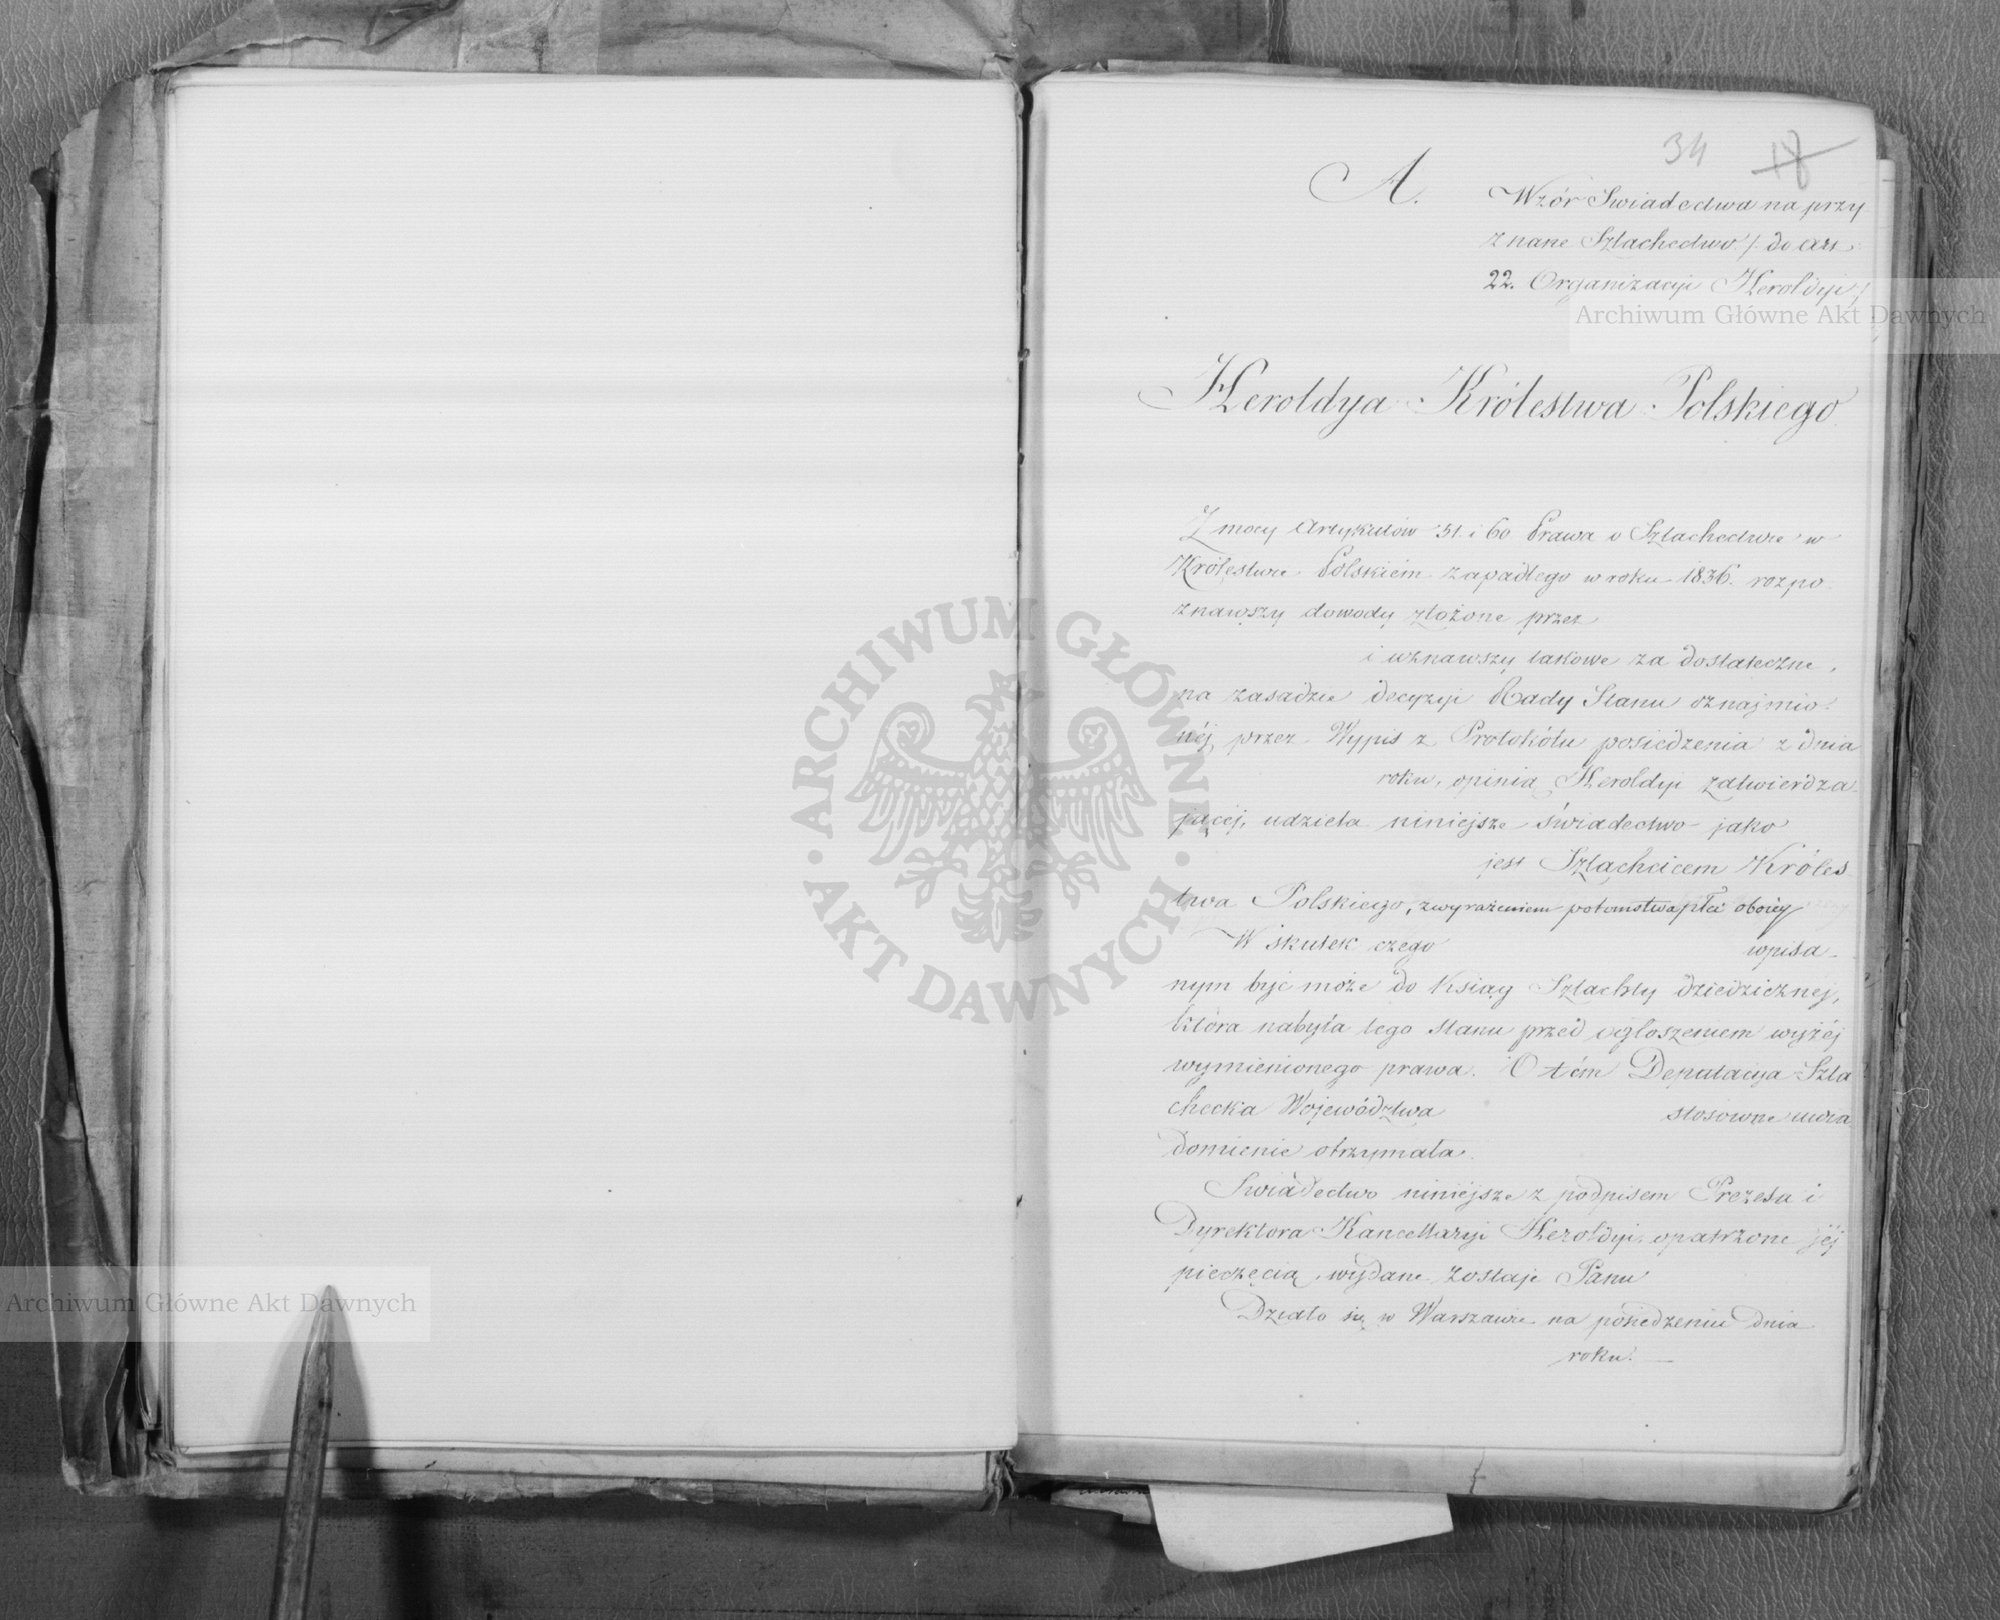 34 18
A. Wzór Swiadectwa na przy
znane Szlachectwo /: do Art:
22. Organizacyi Heroldyi /
Heroldya Królestwa Polskiego.
Z mocy Artykułów 51 i 60 Prawa o Szlachectwie w
Królestwie Polskiém zapadłego w roku 1836. rozpo-
znawszy dowody złożone przez
i uznawszy takowe za dostateczne,
na zasadzie decyzyi Rady Stanu oznajmio-
nej przez Wypis z Protokółu posiedzenia z dnia
roku, opinią Heroldyi zatwierdza-
jącéj, udziela niniejsze świadectwo jako
jest Szlachcicem Króles-
twa Polskiego, z wyrażeniem potomstwa płci obojey
W skutek czego wpisa-
nym być może do Ksiąg Szlachty dziedzicznej,
która nabyła tego stanu przed ogłoszeniem wyżéj
wymienionego prawa. O tém Deputacya Szla
checka Województwa stosowne uwia
domienie otrzymała.
Swiadectwo niniejsze z podpisem Prezesa i
Dyrektora Kancellaryi Heroldyi, opatrzone jéj
pieczęcią, wydane zostaje Panu
Działo się w Warszawie na posiedzeniu dnia
roku. —
Archiwum Główne Akt Dawnych
Archiwum Główne Akt Dawnych
ARCHIWUM GŁÓWNE
AKT DAWNYCH